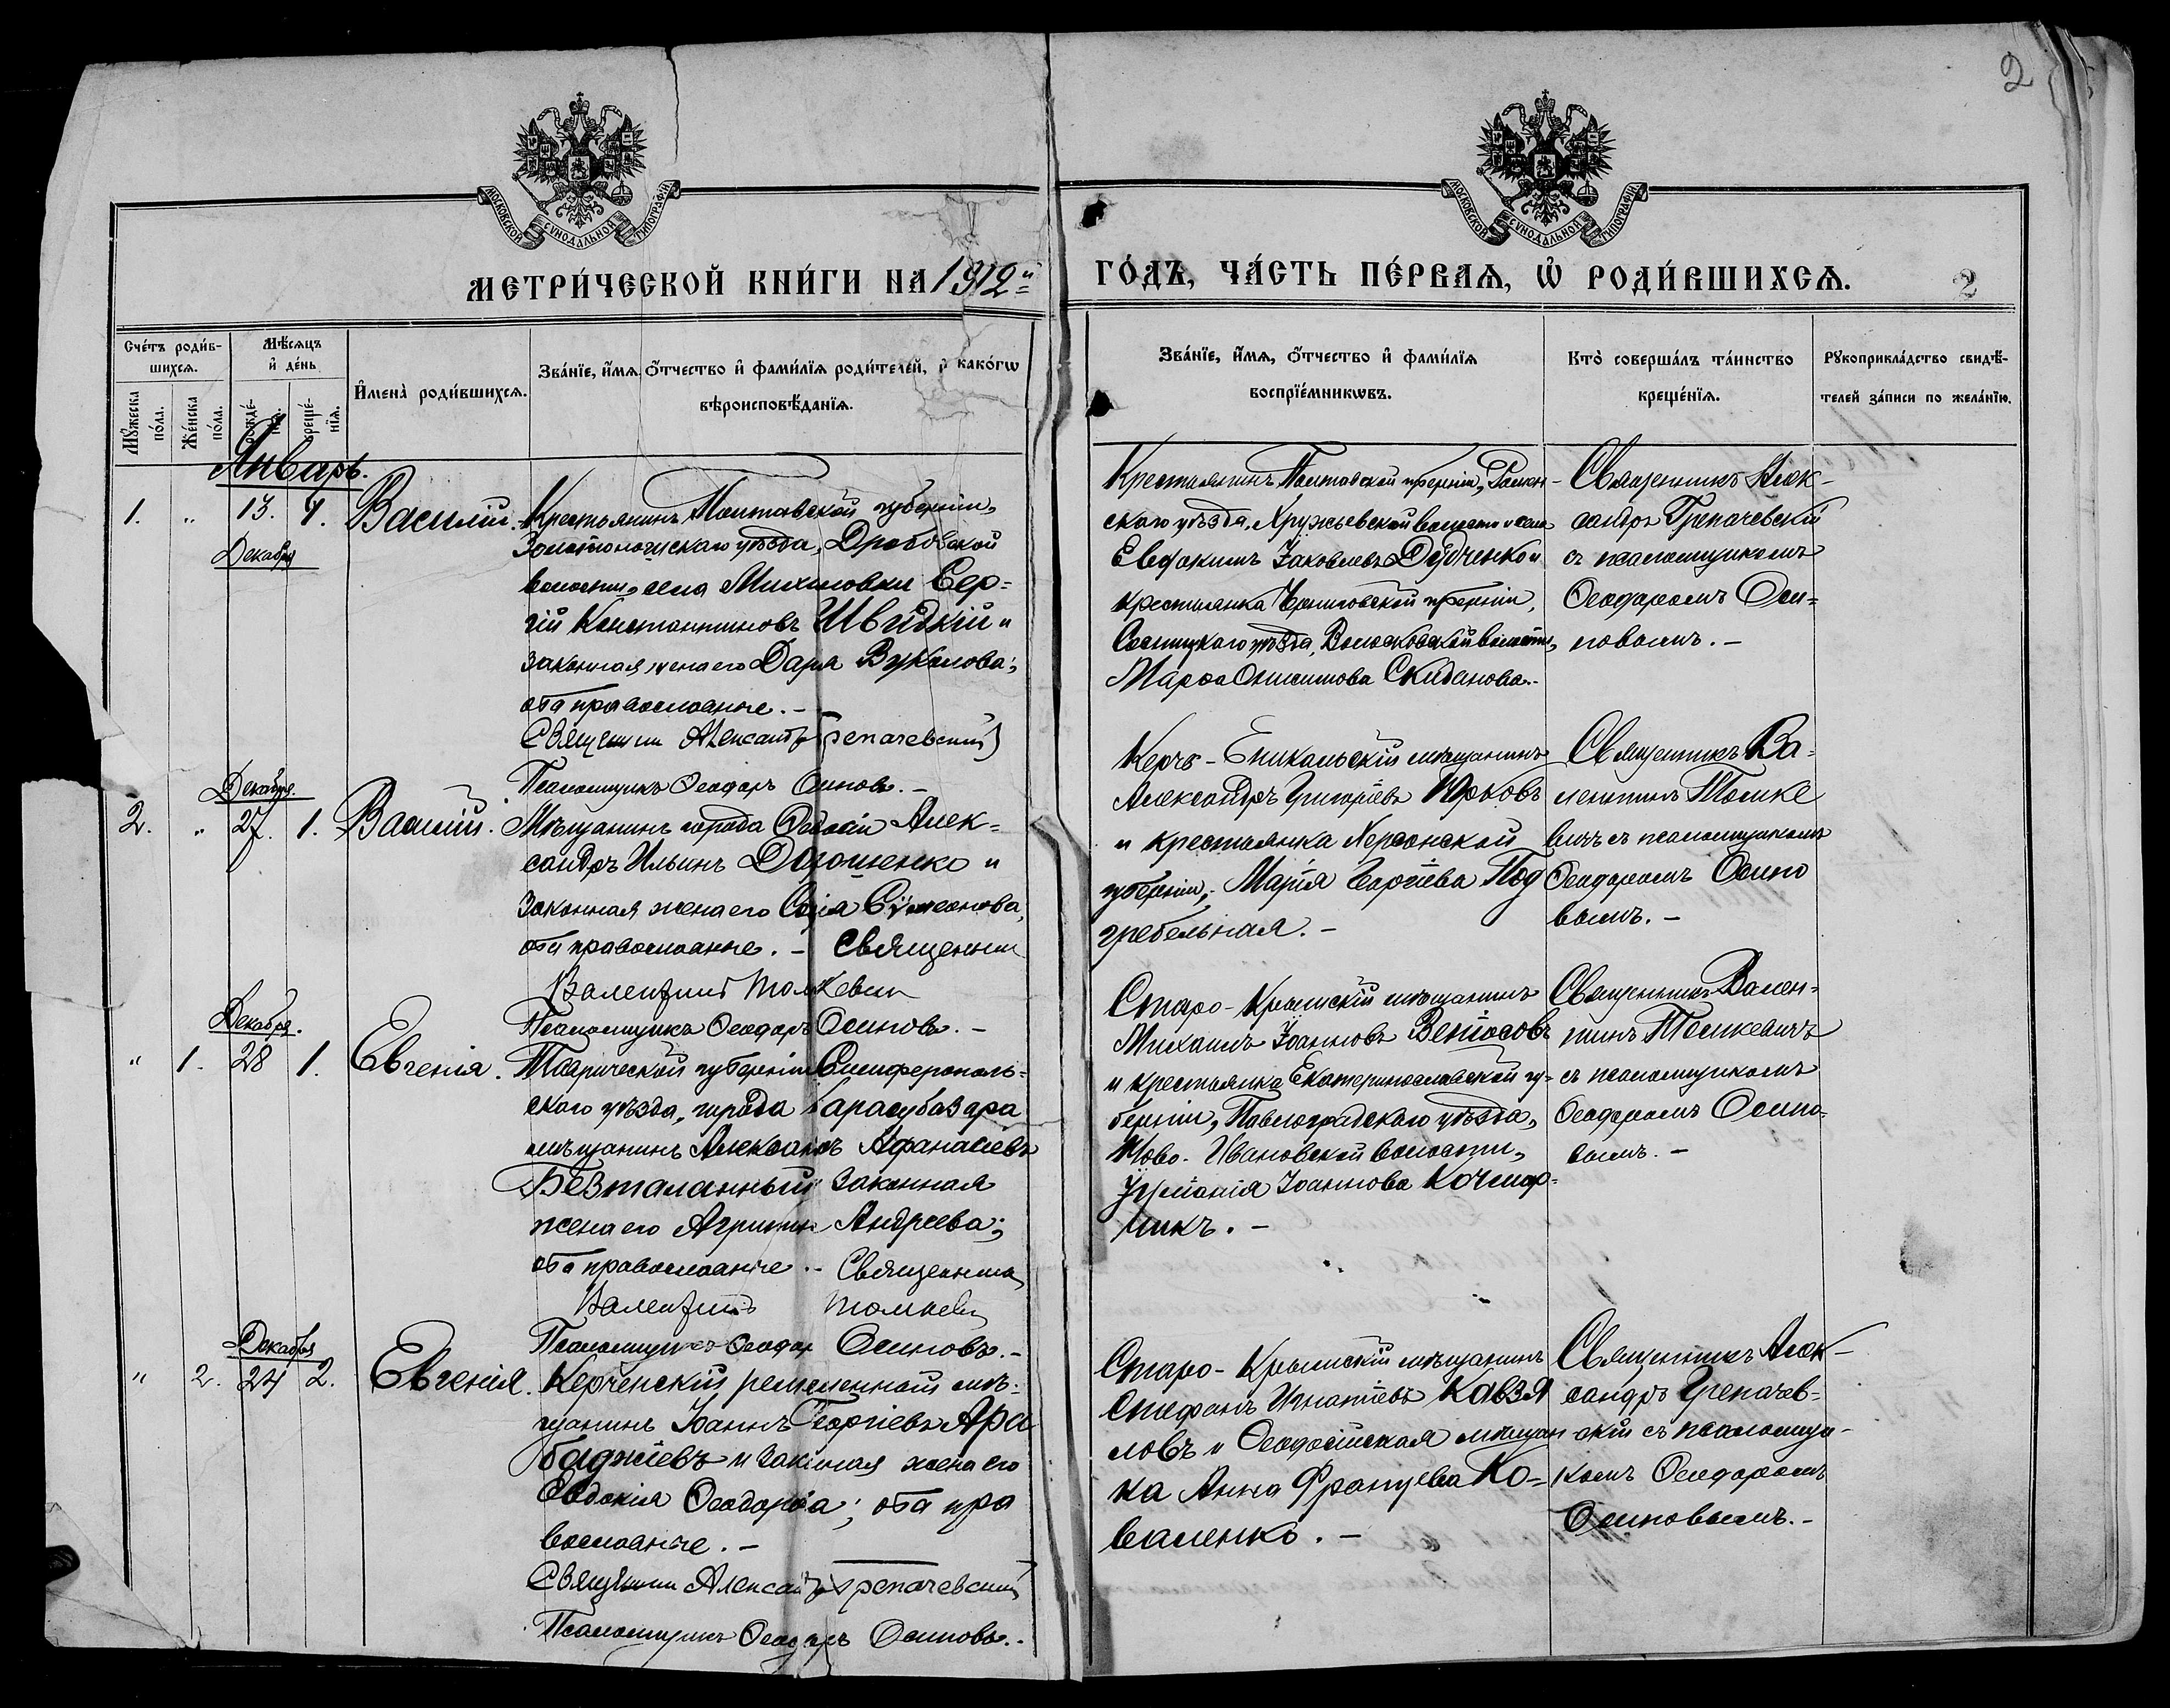 2
МОСКОВСКОЙ СѴНОДАЛЬНОЙ ТИПОГРАФІИ
МОСКОВСКОЙ СѴНОДАЛЬНОЙ ТИПОГРАФІИ
МЕТРИ́ЧЕСКОЙ КНИ́ГИ НА 1912й
ГО́ДЪ, ЧА́СТЬ ПЕ́РВАѦ, Ѿ РОДИ́ВШИХСѦ.
2
Счéтъ роди́в-
шихсѧ.
Мѣ́сѧцъ
и҆ де́нь
Мꙋ́жеска
по́ла.
Же́нска
по́ла.
рожде́-
нїѧ.
креще́-
нїѧ.
И҆мена̀ роди́вшихсѧ.
Зва́нїе, и҆́мѧ, о҆́тчество и҆ фами́лїѧ роди́телей, и҆ како́гѡ
вѣроисповѣ́данїѧ.
Зва́нїе, и҆́мѧ, о҆́тчество и҆ фами́лїѧ
воспрїе́мникѡвъ.
Кто̀ соверша́лъ та́инство
креще́нїѧ.
Рꙋкоприкла́дство свидѣ́-
телей за́писи по жела́нїю.
Январь.
1. " 13. 1. Василій.
Декабря
Крестьянинъ Полтавской губерніи,
Золотоношскаго уѣзда, Дробовской
волости, села Михайловки Сер-
гій Константиновъ Швидкій и
законная жена его Дарія Вуколова;
оба православные. –
Священникъ Александръ Грепачевскій
Псаломщикъ Ѳеодоръ Осиповъ. –
Крестьянинъ Полтавской губерніи, Ромен-
скаго уѣзда,
Евфокимъ Іаковлевъ Дудченко и
крестьянка Черниговской губерніи,
Сосницкаго уѣзда, Волосковской волости,
Марѳа Онисимова Скиданова.
Священникъ Алек-
сандръ Грепачевскій
съ псаломщикомъ
Ѳеодоромъ Оси-
повымъ. –
Декабря.
2. " 27. 1. Василій.
Мѣщанинъ города Ѳеодосіи Алек-
сандръ Ильинъ Дорошенко и
законная жена его Софія Сѵмеонова,
оба православные. – Священникъ
Валентинъ Томкевичъ
Псаломщикъ Ѳеодоръ Осиповъ. –
Керчь-Еникальскій мѣщанинъ
Александръ Григоріевъ Юрковъ
и крестьянка Херсонской
губерніи, Марія Георгіева Под
гребельная. –
Священникъ Ва-
лентинъ Томке
вичъ съ псаломщикомъ
Ѳеодоромъ Осипо
вымъ. –
Декабря.
" 1. 28 1. Евгенія.
Таврической губерніи Симферополь-
скаго уѣзда, города Карасубазара
мѣщанинъ Александръ Афанасіевъ
Безталанный законная
жена его Агрипина Андреева;
оба православные. – Священникъ
Валентинъ Томкевичъ
Псаломщикъ Ѳеодоръ Осиповъ. –
Старо-Крымскій мѣщанинъ
Михаилъ Іоанновъ
и крестьянка Екатеринославской гу-
берніи, Павлоградскаго уѣзда,
Ново-Ивановской волости,
Іуліанія Іоаннова
никъ. –
Священникъ Вален-
тинъ Томкевичъ
съ псаломщикомъ
Ѳеодоромъ Осипо-
вымъ. –
Декабря
" 2. 24 2. Евгенія.
Керченскій ремесленный мѣ-
щанинъ Іоаннъ Георгіевъ Ара
баджіевъ и законная жена его
Евдокія Ѳеодорова; оба пра
вославные. –
Священникъ Александръ Грепачевскій
Псаломщикъ Ѳеодоръ Осиповъ. –
Старо-Крымскій мѣщанинъ
Стефанъ Игнатіевъ Кавзя
ловъ и Ѳеодосійская мѣщан
ка Анна Францева Ко-
валенко. –
Священникъ Алек-
сандръ Грепачев-
скій съ псаломщи-
комъ Ѳеодоромъ
Осиповымъ. –